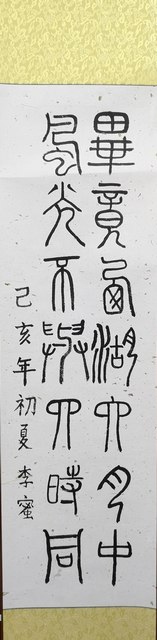 畢竟西湖六月中
風光不與四時同
己亥年初夏 李蜜